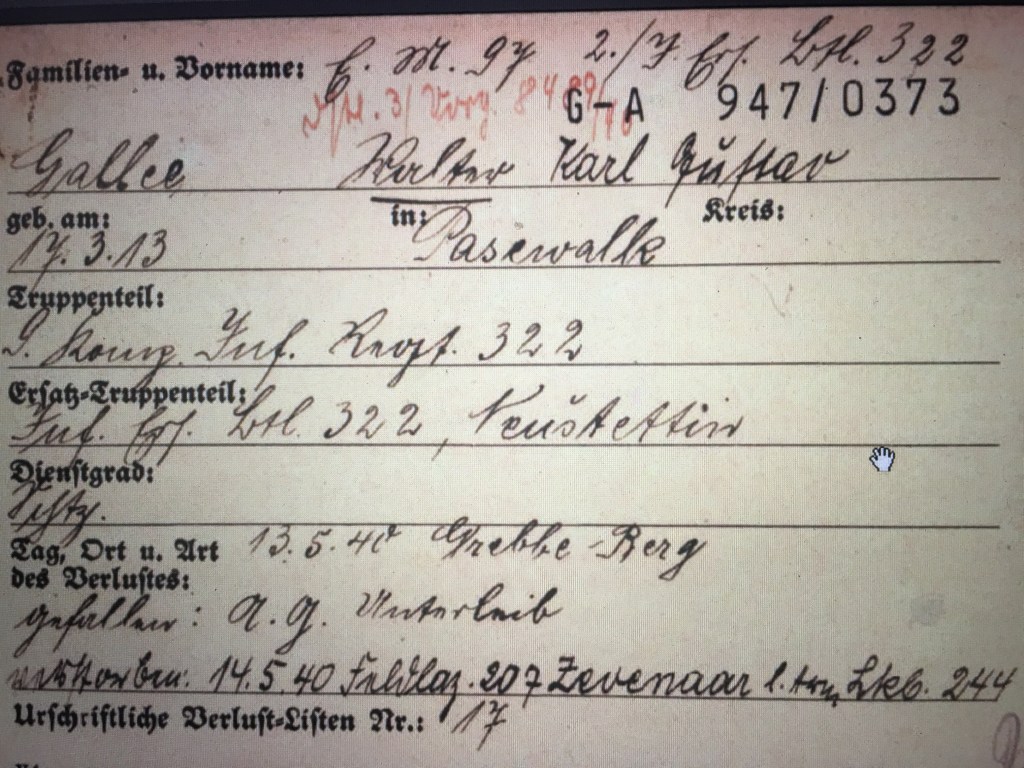 Familien- u. Vorname: E. M. 97 2./I. Ers. Btl. 322
G-A 947/0373
Gallee Walter Karl Gustav
geb. am: in: Kreis:
17.3.13 Pasewalk
Truppenteil:
Komp. Inf. Regt. 322
Ersatz-Truppenteil:
Inf. Ers. Btl. 322, Neustettin
Dienstgrad:
Schtz.
Tag, Ort u. Art 13.5.40 Grebbe-Berg
des Verlustes:
gefallen: A.G. Unterleib
verstorben: 14.5.40 Feldlaz. 207 Zevenaar 244
Urschriftliche Verlust-Listen Nr.: 17